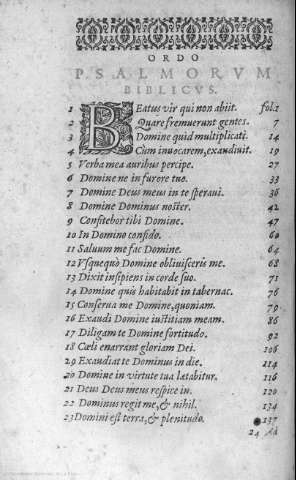 ORDO
PSALMORVM
BIBLICVS.
1 BEatus vir qui non abiit. fol.1
2 Quare fremuerunt gentes. 7
3 Domine quid multiplicati. 14
4 Cum inuocarem, exaudiuit. 19
5 Verba mea auribus percipe. 27
6 Domine ne in furore tuo. 33
7 Domine Deus meus in te speraui. 36
8 Domine Dominus noster. 42
9 Confitebor tibi Domine. 47
10 In Domino confido. 60
11 Saluum me fac Domine. 64
12 Vsquequò Domine obliuisceris me. 68
13 Dixit insipiens in corde suo. 71
14 Domine quis habitabit in tabernac. 76
15 Conserua me Domine, quoniam. 79
16 Exaudi Domine iustitiam meam. 86
17 Diligam te Domine fortitudo. 92
18 Cœli enarrant gloriam Dei. 106
19 Exaudiat te Dominus in die. 114
20 Domine in virtute tua lætabitur. 116
21 Deus Deus meus respice in. 120
22 Dominus regit me, & nihil. 134
23 Domini est terra, & plenitudo. 137
24 Ad